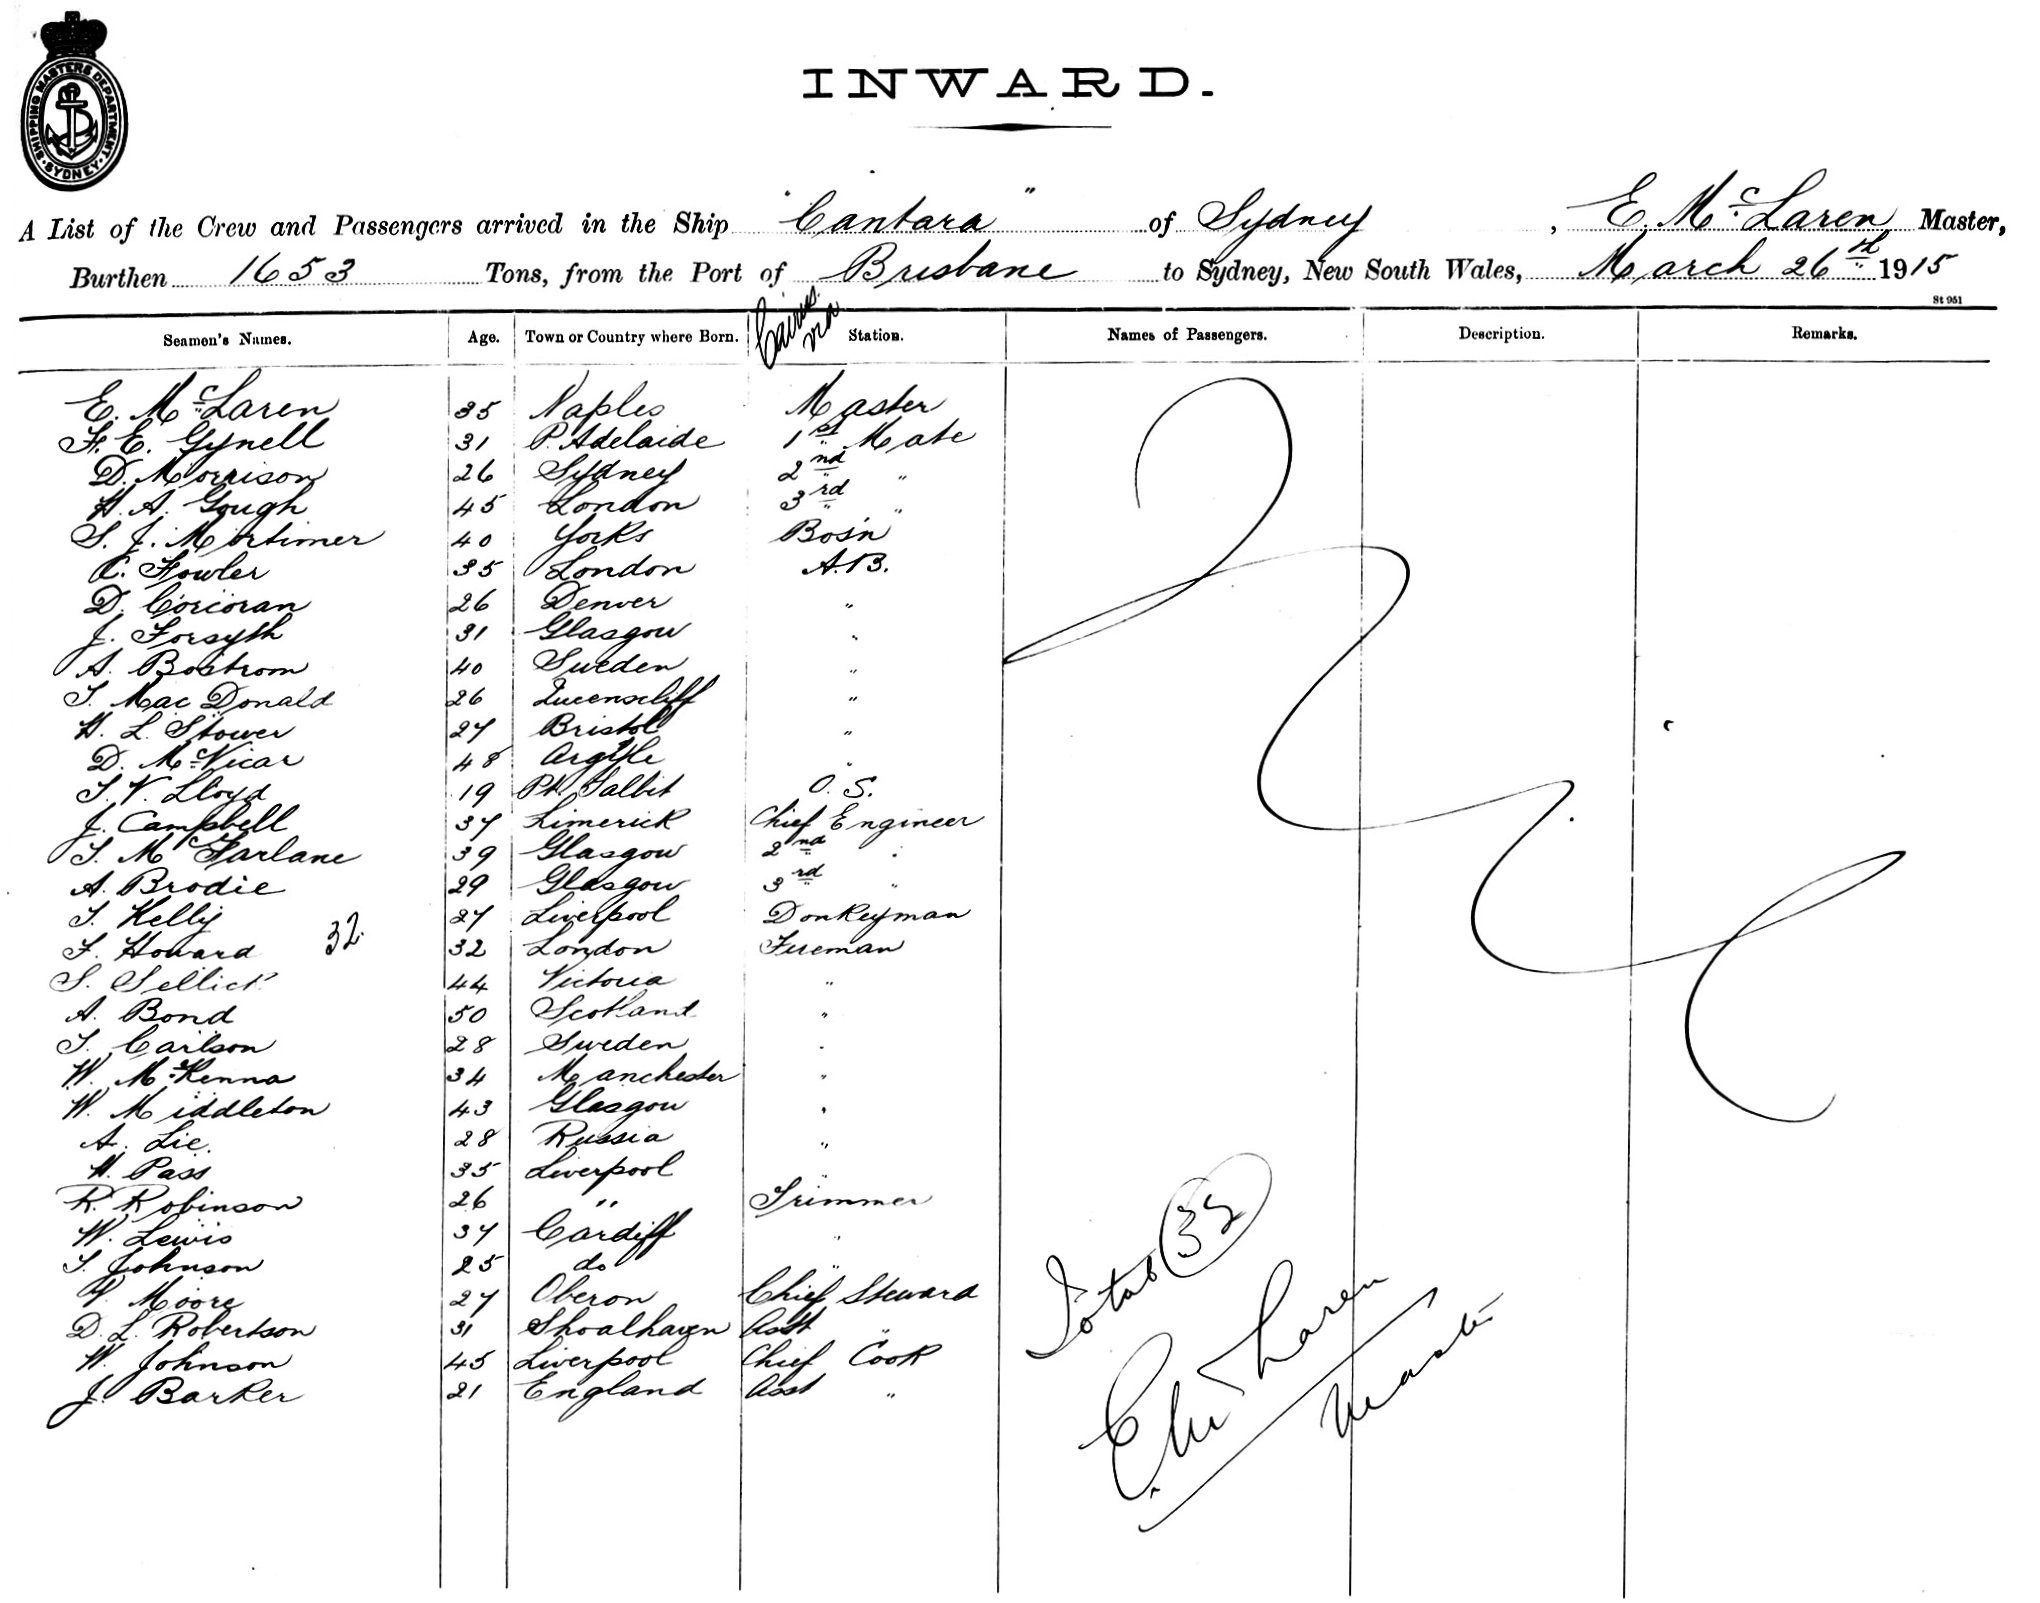 SHIPPING MASTERS DEPARTMENT · SYDNEY ·
INWARD.
A List of the Crew and Passengers arrived in the Ship "Cantara" of Sydney, E. McLaren Master,
Burthen 1653 Tons, from the Port of Brisbane to Sydney, New South Wales, March 26th 1915
St 951
Cairns via
Seamen's Names. Age. Town or Country where Born. Station. Names of Passengers. Description. Remarks.
E. McLaren 35 Naples Master
F. E. Gynell 31 P. Adelaide 1st Mate
D. Morrison 26 Sydney 2nd "
H. A. Gough 45 London 3rd "
S. J. Mortimer 40 Yorks Bos'n
C. Fowler 35 London A.B.
D. Corcoran 26 Denver "
J. Forsyth 31 Glasgow "
A. Bostrom 40 Sweden "
T. MacDonald 26 Queenscliff "
H. L. Stower 27 Bristol "
D. McVicar 48 Argyle "
T. V. Lloyd 19 Pt. Talbit O.S.
J. Campbell 37 Limerick Chief Engineer
T. McFarlane 39 Glasgow 2nd "
A. Brodie 29 Glasgow 3rd "
T. Kelly 27 Liverpool Donkeyman
F. Howard 32 32 London Fireman
S. Sellick 44 Victoria "
A. Bond 50 Scotland "
T. Carlson 28 Sweden "
W. McKenna 34 Manchester "
W. Middleton 43 Glasgow "
A. Lie. 28 Russia "
H. Pass 35 Liverpool "
R. Robinson 26 " Trimmer
W. Lewis 37 Cardiff "
T. Johnson 25 do "
V. Moore 27 Oberon Chief Steward
D. L. Robertson 31 Shoalhaven Asst "
W. Johnson 45 Liverpool Chief Cook
J. Barker 21 England Asst "
Total 32
E McLaren
Master